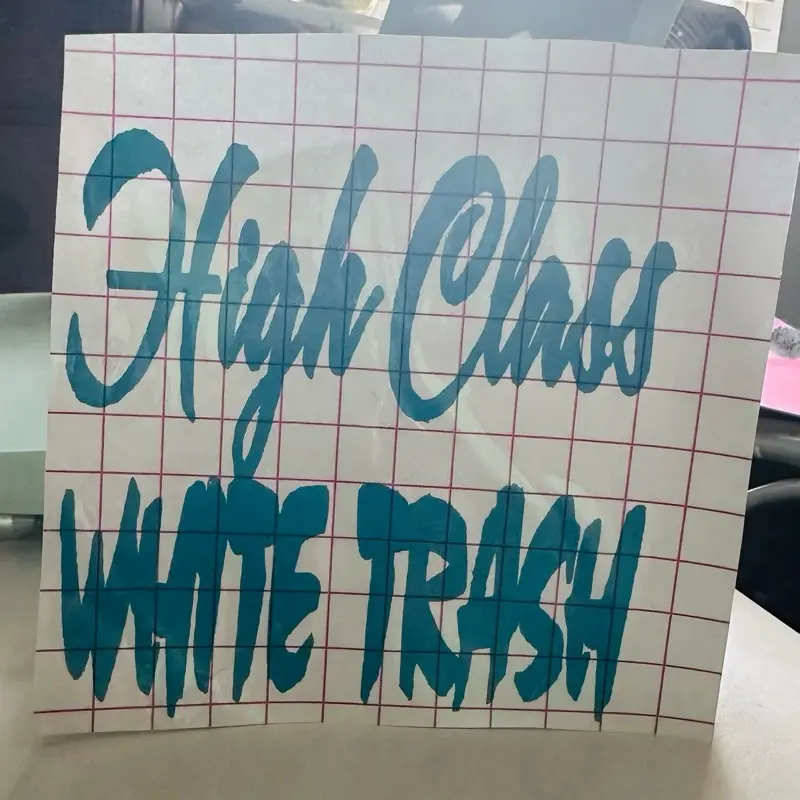 High Class
WHITE TRASH